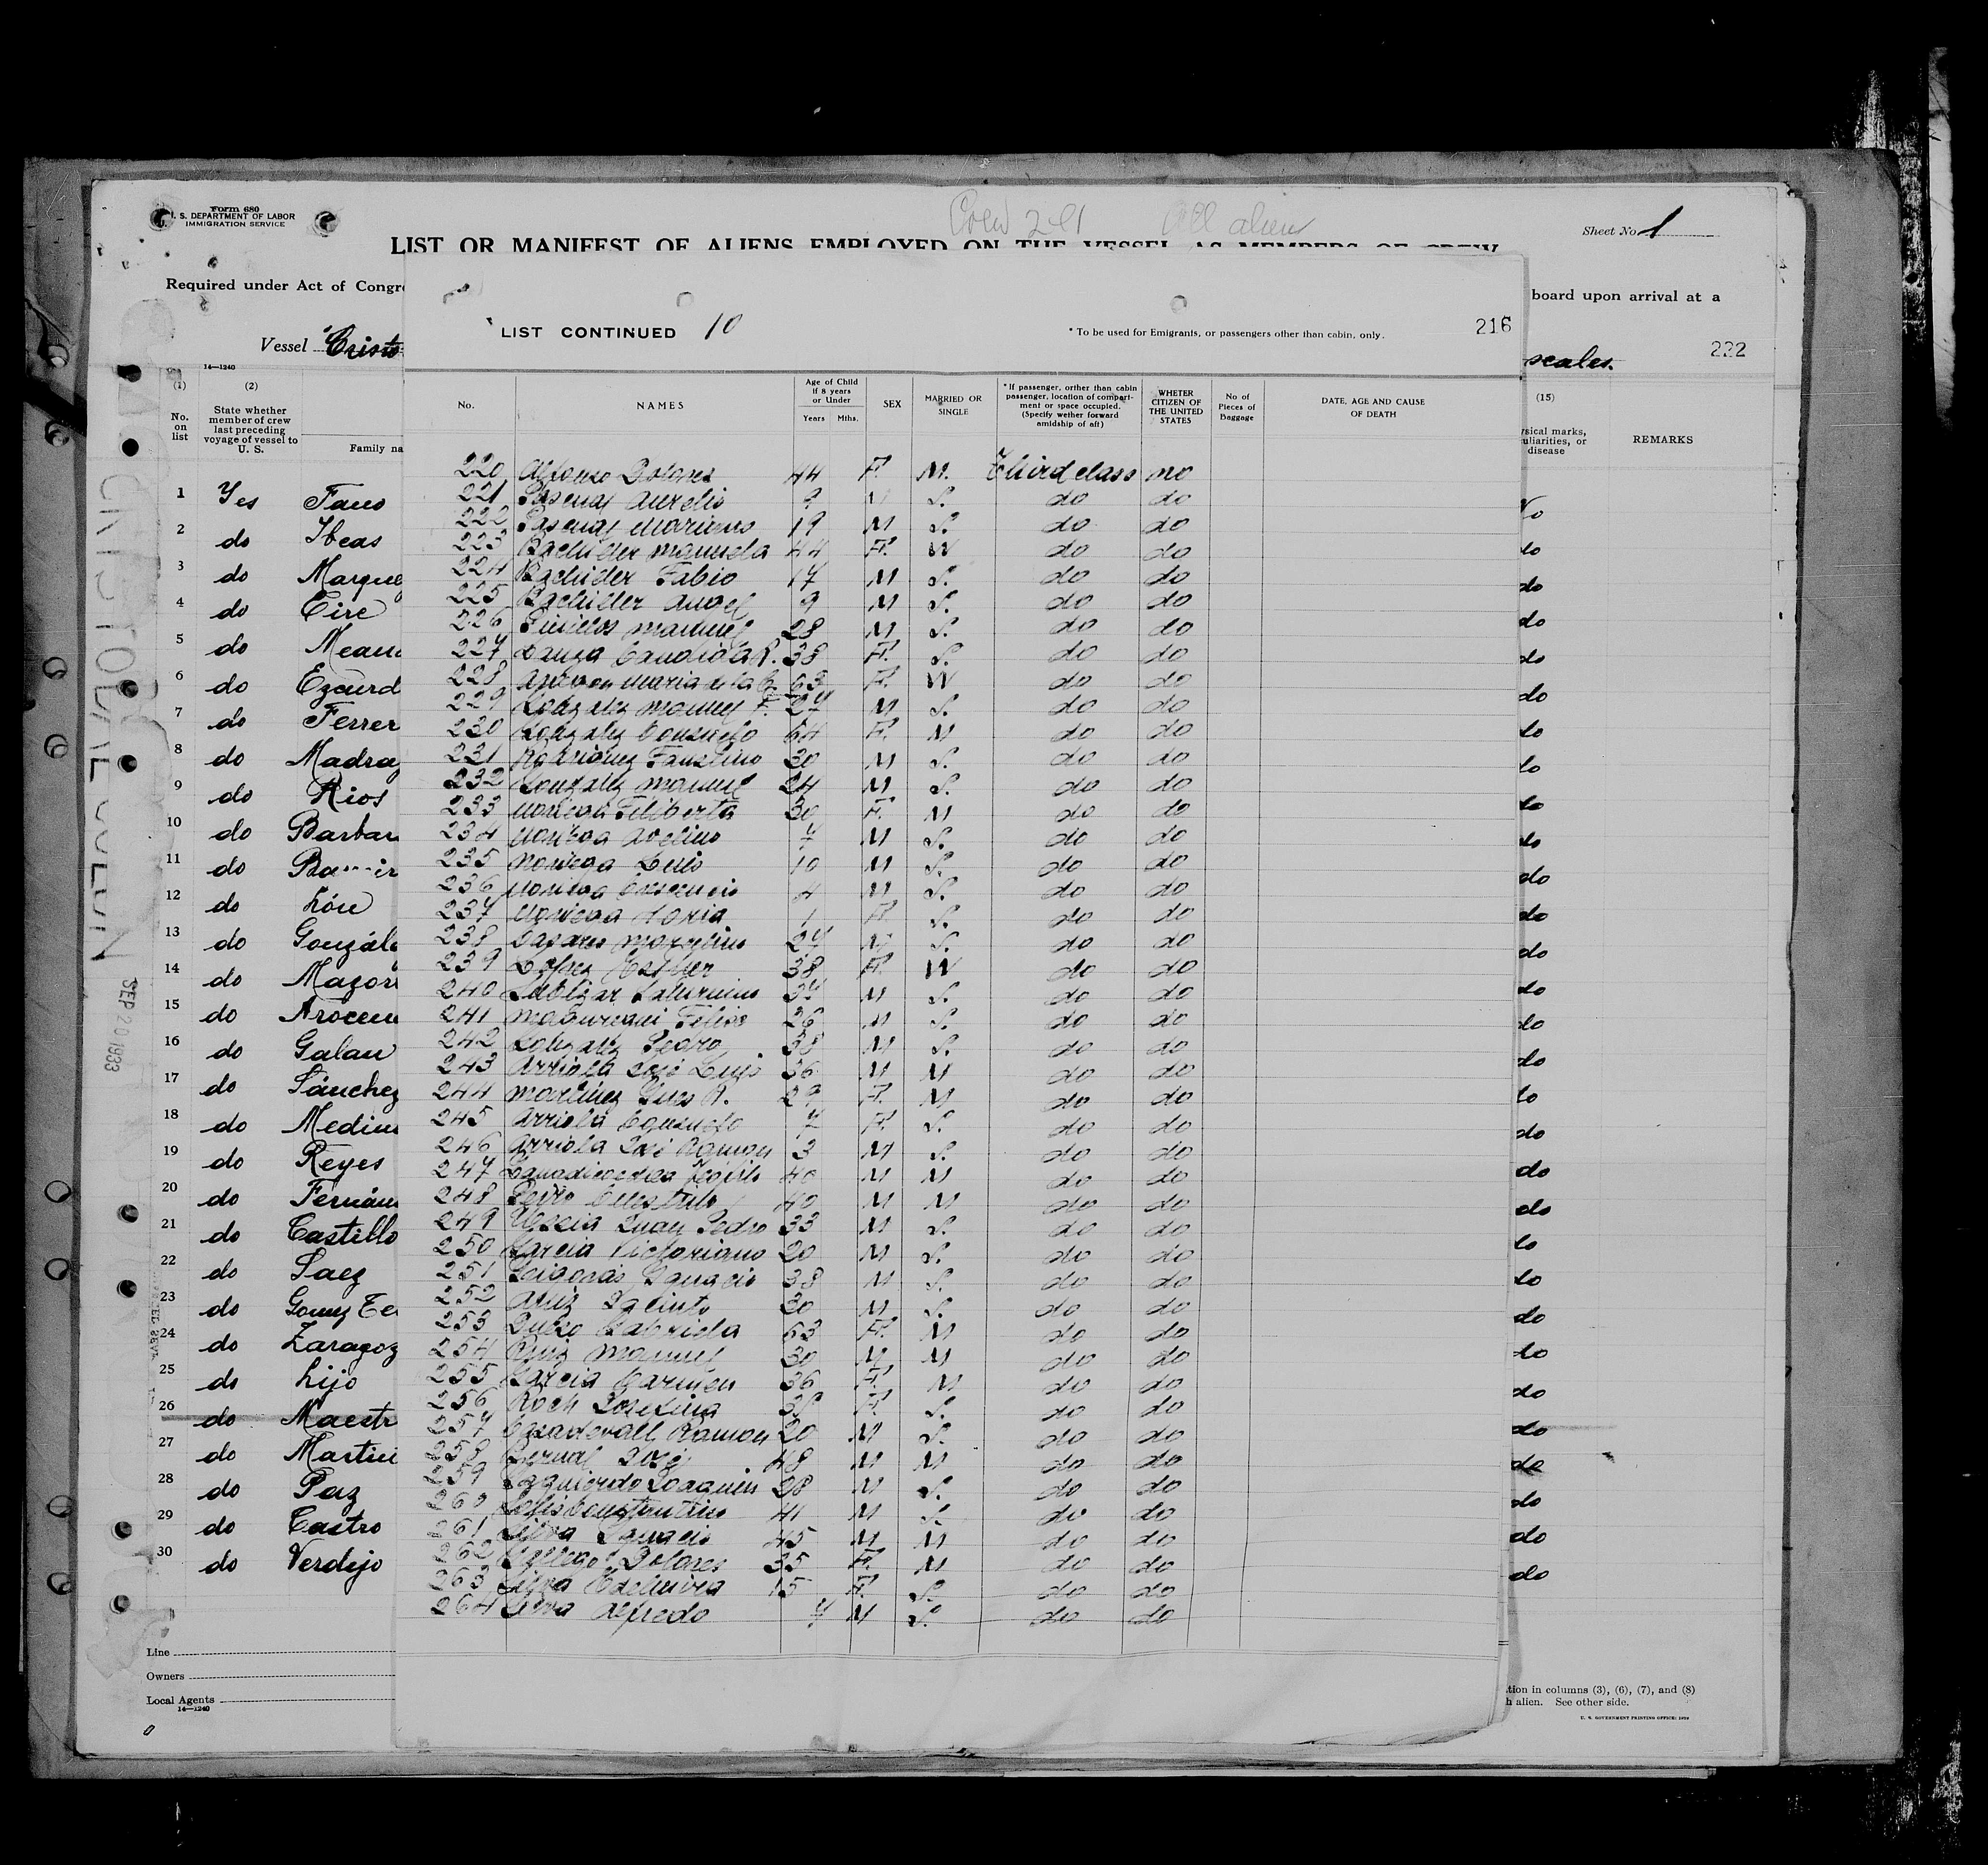 Form 680
U. S. DEPARTMENT OF LABOR
IMMIGRATION SERVICE
Crew 241 All alien
Sheet No. 1
LIST OR MANIFEST OF ALIENS EMPLOYED ON THE VESSEL AS MEMBERS OF CREW
Required under Act of Congre
board upon arrival at a
Vessel Cristo
scales.
222
14—1240
(1) (2) (15)
No. on list
State whether member of crew last preceding voyage of vessel to U. S.
Family na
ysical marks, uliarities, or disease
REMARKS
1 Yes Fano
2 do Ibeas do
3 do Marque do
4 do Eire do
5 do do
6 do Ezcurd do
7 do Ferrer do
8 do Madraz do
9 do Rios do
10 do Barbar do
11 do do
12 do do
13 do Gonzále do
14 do Mazor do
15 do Arocen do
16 do Galan do
17 do Sánchez do
18 do Medin do
19 do Reyes do
20 do Fernán do
21 do Castillo do
22 do Saez do
23 do Gomez Te do
24 do Zaragoz do
25 do Lijo do
26 do Maestr do
27 do Martin do
28 do Paz do
29 do Castro do
30 do Verdejo do
Line
Owners
Local Agents
14—1240
tion in columns (3), (6), (7), and (8)
h alien. See other side.
U. S. GOVERNMENT PRINTING OFFICE:
CRISTOBAL COLON
SEP 20 1933
LIST CONTINUED 10
* To be used for Emigrants, or passengers other than cabin, only.
216
No.
NAMES
Age of Child if 8 years or Under
Years Mths.
SEX
MARRIED OR SINGLE
* If passenger, orther than cabin passenger, location of compartment or space occupied. (Specify wether forward amidship of aft)
WHETER CITIZEN OF THE UNITED STATES
No of Pieces of Baggage
DATE, AGE AND CAUSE OF DEATH
220 Alfonso Dolores 44 F. M. Third class no
221 Pascual Aurelio 9 M S. do do
222 Pascual Mariano 19 M S. do do
223 Bachiller Manuela 44 F. W do do
224 Bachiller Fabio 17 M S. do do
225 Bachiller Angel 9 M S. do do
226 Manuel 28 M S. do do
227 Candida R. 38 F. S. do do
228 Maria de la C. 63 F. W do do
229 Gonzalez Manuel F. 27 M S. do do
230 Gonzalez Consuelo 64 F. M do do
231 Rodriguez Faustino 30 M S. do do
232 Gonzalez Manuel 24 M S. do do
233 Noriega Filiberta 30 F. M do do
234 Noriega Avelino 7 M S. do do
235 Noriega Luis 10 M S. do do
236 Noriega Crescencio 4 M S. do do
237 Noriega 1 F. S. do do
238 Casares Marcelino 27 M S. do do
239 Lopez Esther 38 F. W do do
240 Saturnino M S. do do
241 Felipe 26 M S. do do
242 Gonzalez Pedro 38 M S. do do
243 Arriola José Luis 36 M M do do
244 Martinez Ines R. 29 F. M do do
245 Arriola Consuelo 7 F. S. do do
246 Arriola José Ramon 3 M S. do do
247 40 M M do do
248 40 M M do do
249 Juan Pedro 33 M S. do do
250 Garcia Victoriano 20 M S. do do
251 Ignacio 38 M S. do do
252 Jacinto 30 M S. do do
253 Gabriela 53 F. M do do
254 Ruiz Manuel 30 M M do do
255 Garcia Carmen 36 F. M do do
256 Roch Josefina F. S. do do
257 Casadevall Ramon 20 M S. do do
258 Bernal José 48 M M do do
259 Izquierdo Joaquin 28 M S. do do
260 Solis Constantino 41 M S. do do
261 Silva Ignacio 45 M M do do
262 Gallego Dolores 35 F. M do do
263 Silva Edelmira 15 F. S. do do
264 Silva Alfredo 7 M S. do do